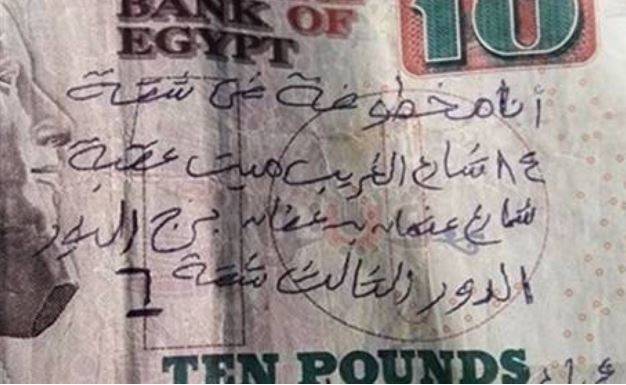 BANK OF
EGYPT
10
أنا مخطوفة في شقة
شارع الغريب ميت عقبة
شارع عثمان بن عفان برج النور
الدور الثالث شقة 6
TEN POUNDS